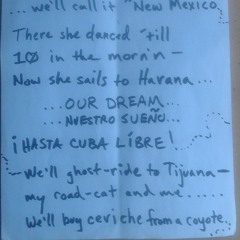 ...we'll call it "New Mexico
There she danced 'till
10 in the morn'n —
Now she sails to Havana...
...OUR DREAM...
...NUESTRO SUEÑO...
¡HASTA CUBA LÍBRE!
We'll ghost-ride to Tijuana —
my road-cat and me......
We'll buy ceviche from a coyote